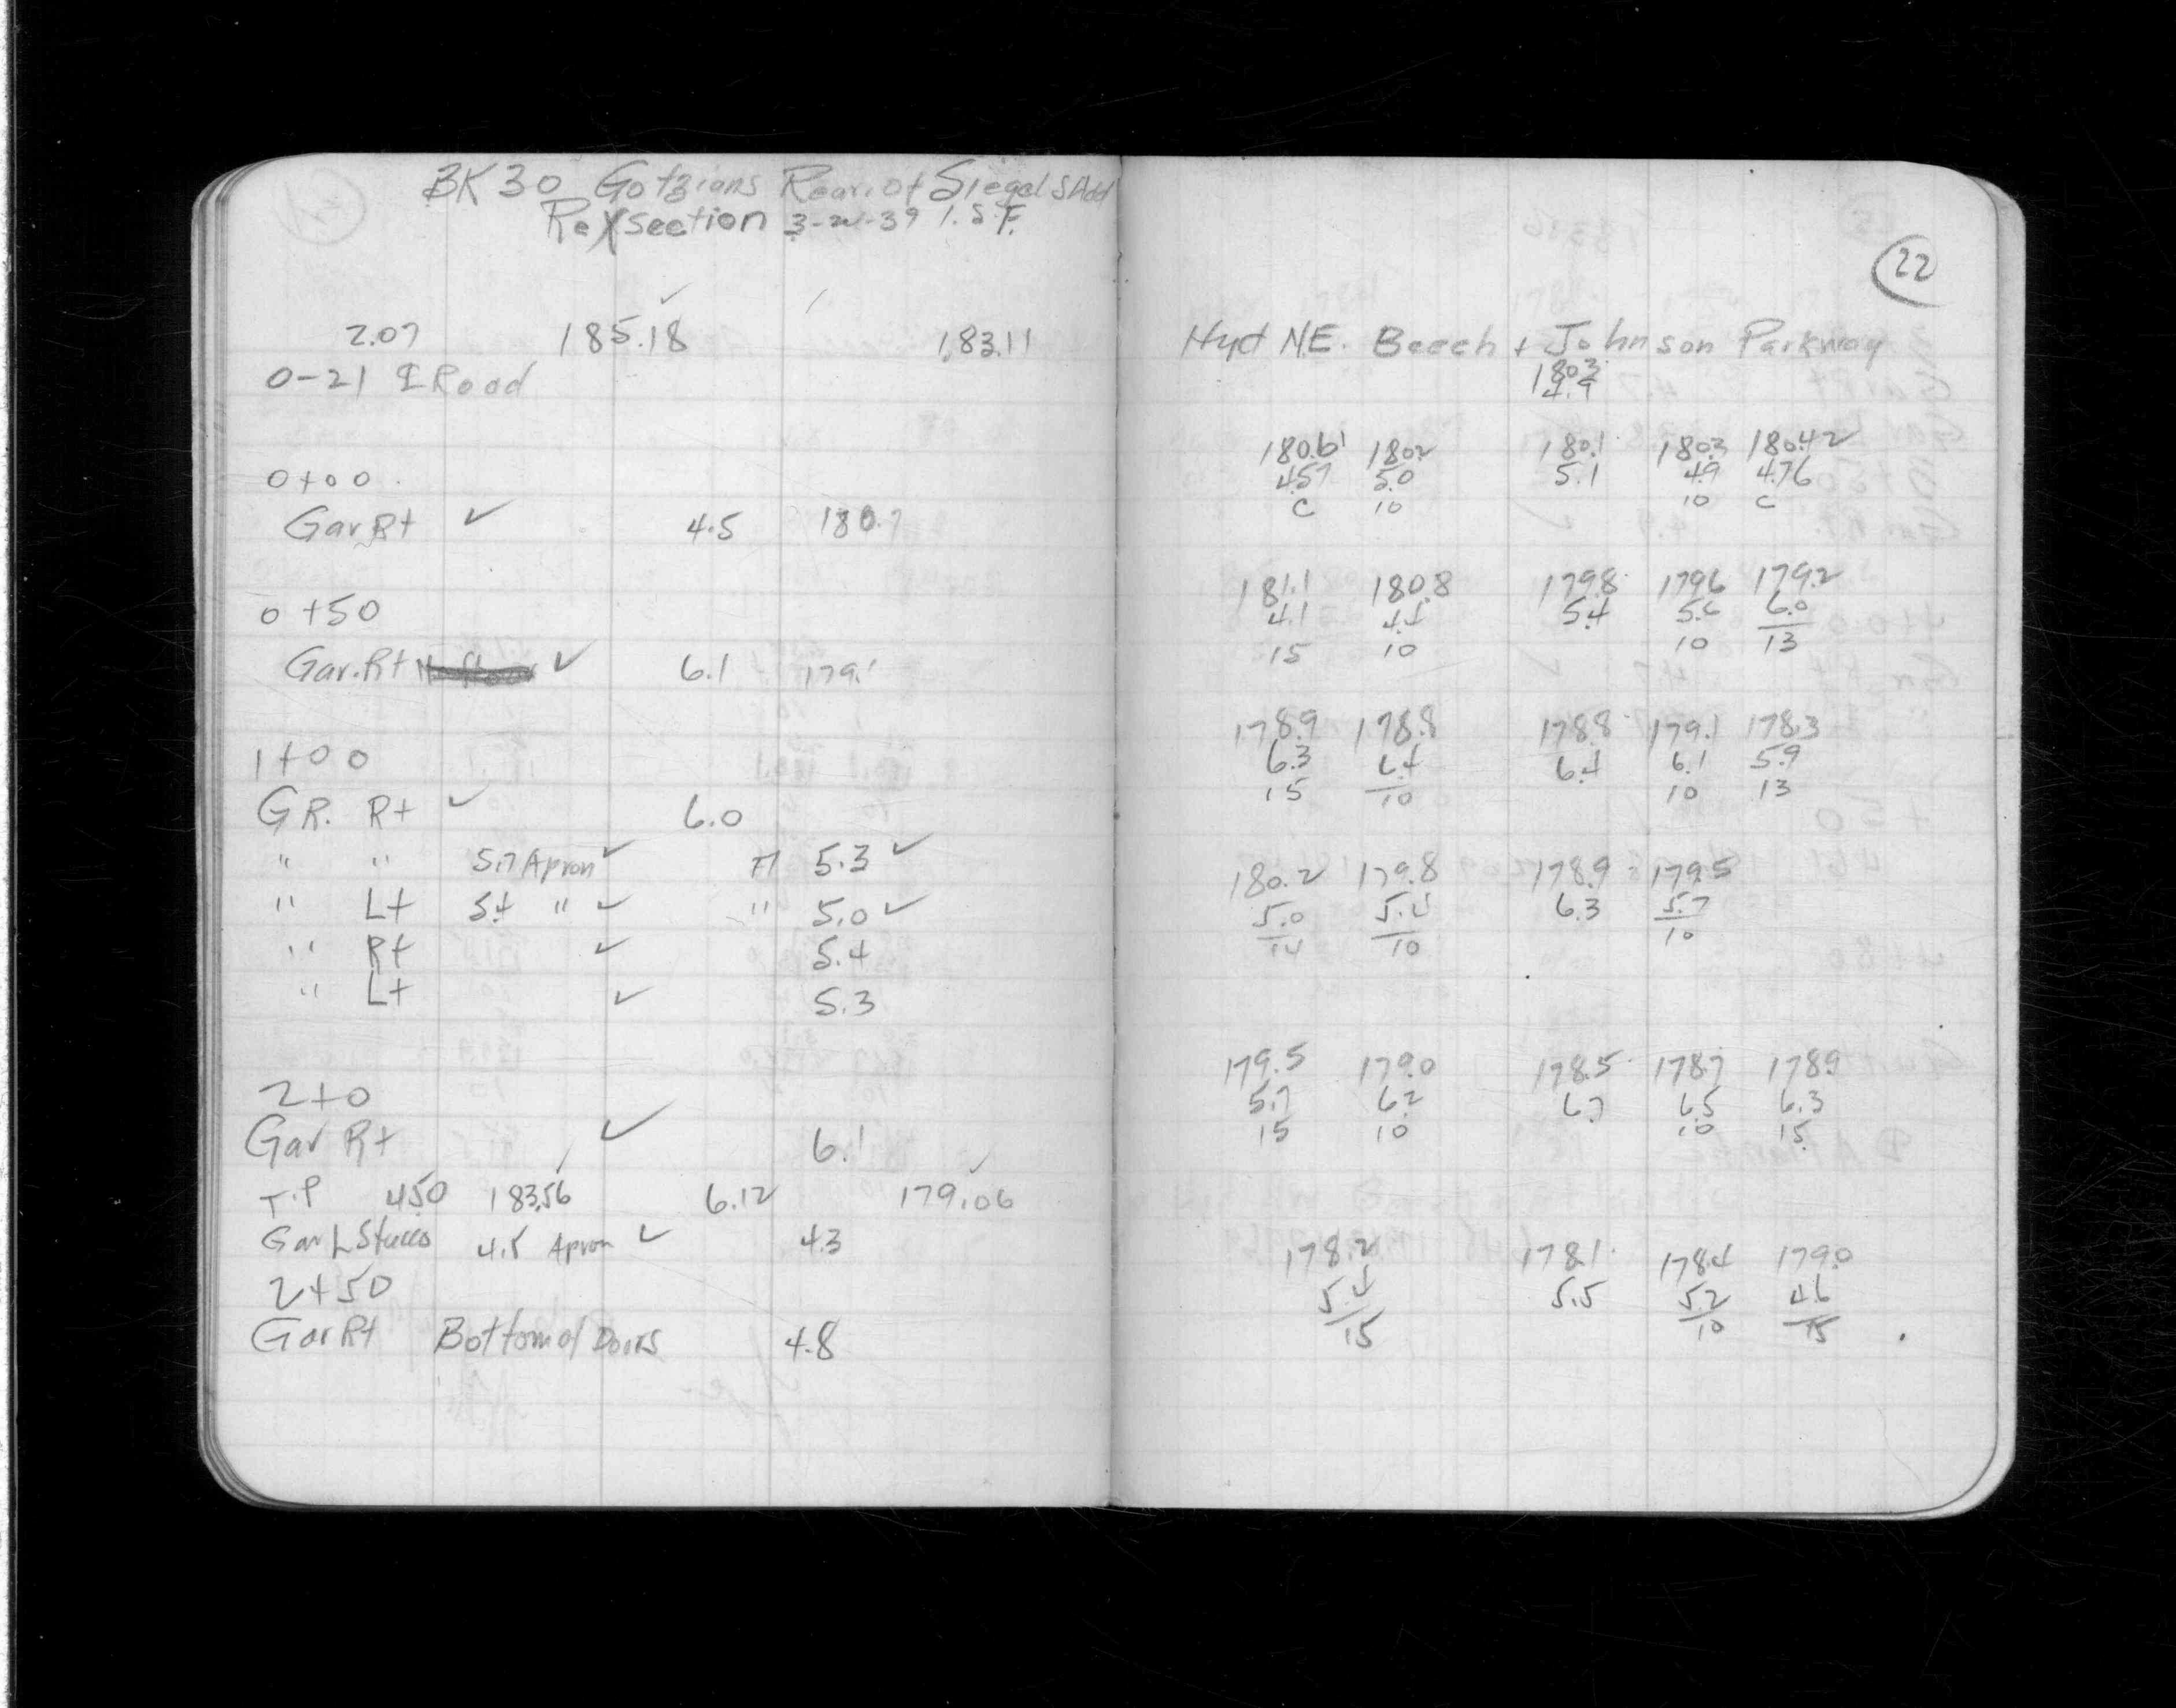 BK 30 Gotzians Rear. of Siegel's Add
Re X section 3-20-39 I.S.F.
2.07 185.18 ✓ 183.11
0-21 ℄ Road
0+00
Gar Rt ✓ 4.5 180.7
0+50
Gar. Rt ✓ 6.1 179.1
1+00
GR. Rt ✓ 6.0
" " 5.7 Apron ✓ Fl 5.3 ✓
" Lt 5.4 " ✓ " 5.0 ✓
" Rt ✓ 5.4
" Lt ✓ 5.3
2+0
Gar Rt ✓ 6.1
T.P 4.50 183.56 ✓ 6.12 179.06 ✓
Gar L Stucco 4.5 Apron ✓ 4.3
2+50
Gar Rt Bottom of Doors 4.8
22
Hyd N.E. Beech + Johnson Parkway
180.3
4.9
180.61 180.2 180.1 180.3 180.42
4.57 5.0 5.1 4.9 4.76
C 10 10 C
181.1 180.8 179.8 179.6 179.2
4.1 4.4 5.4 5.6 6.0
15 10 10 13
178.9 178.8 178.8 179.1 178.3
6.3 6.4 6.4 6.1 5.9
15 10 10 13
180.2 179.8 178.9 179.5
5.0 5.4 6.3 5.7
14 10 10
179.5 179.0 178.5 178.7 178.9
5.7 6.2 6.7 6.5 6.3
15 10 10 15
178.2 178.1 178.4 179.0
5.4 5.5 5.2 4.6
15 10 15